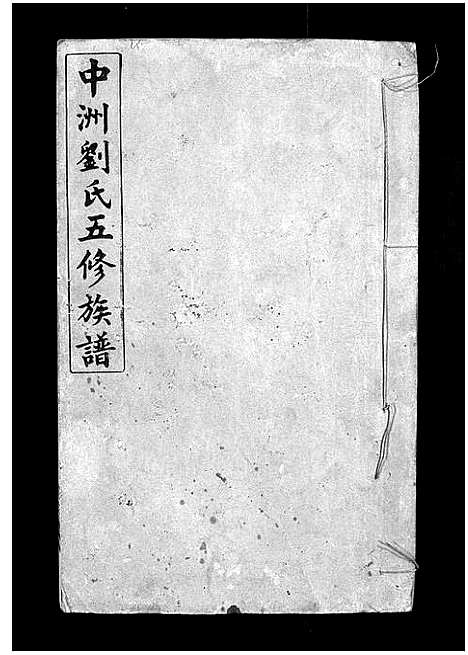 中洲劉氏五修族譜